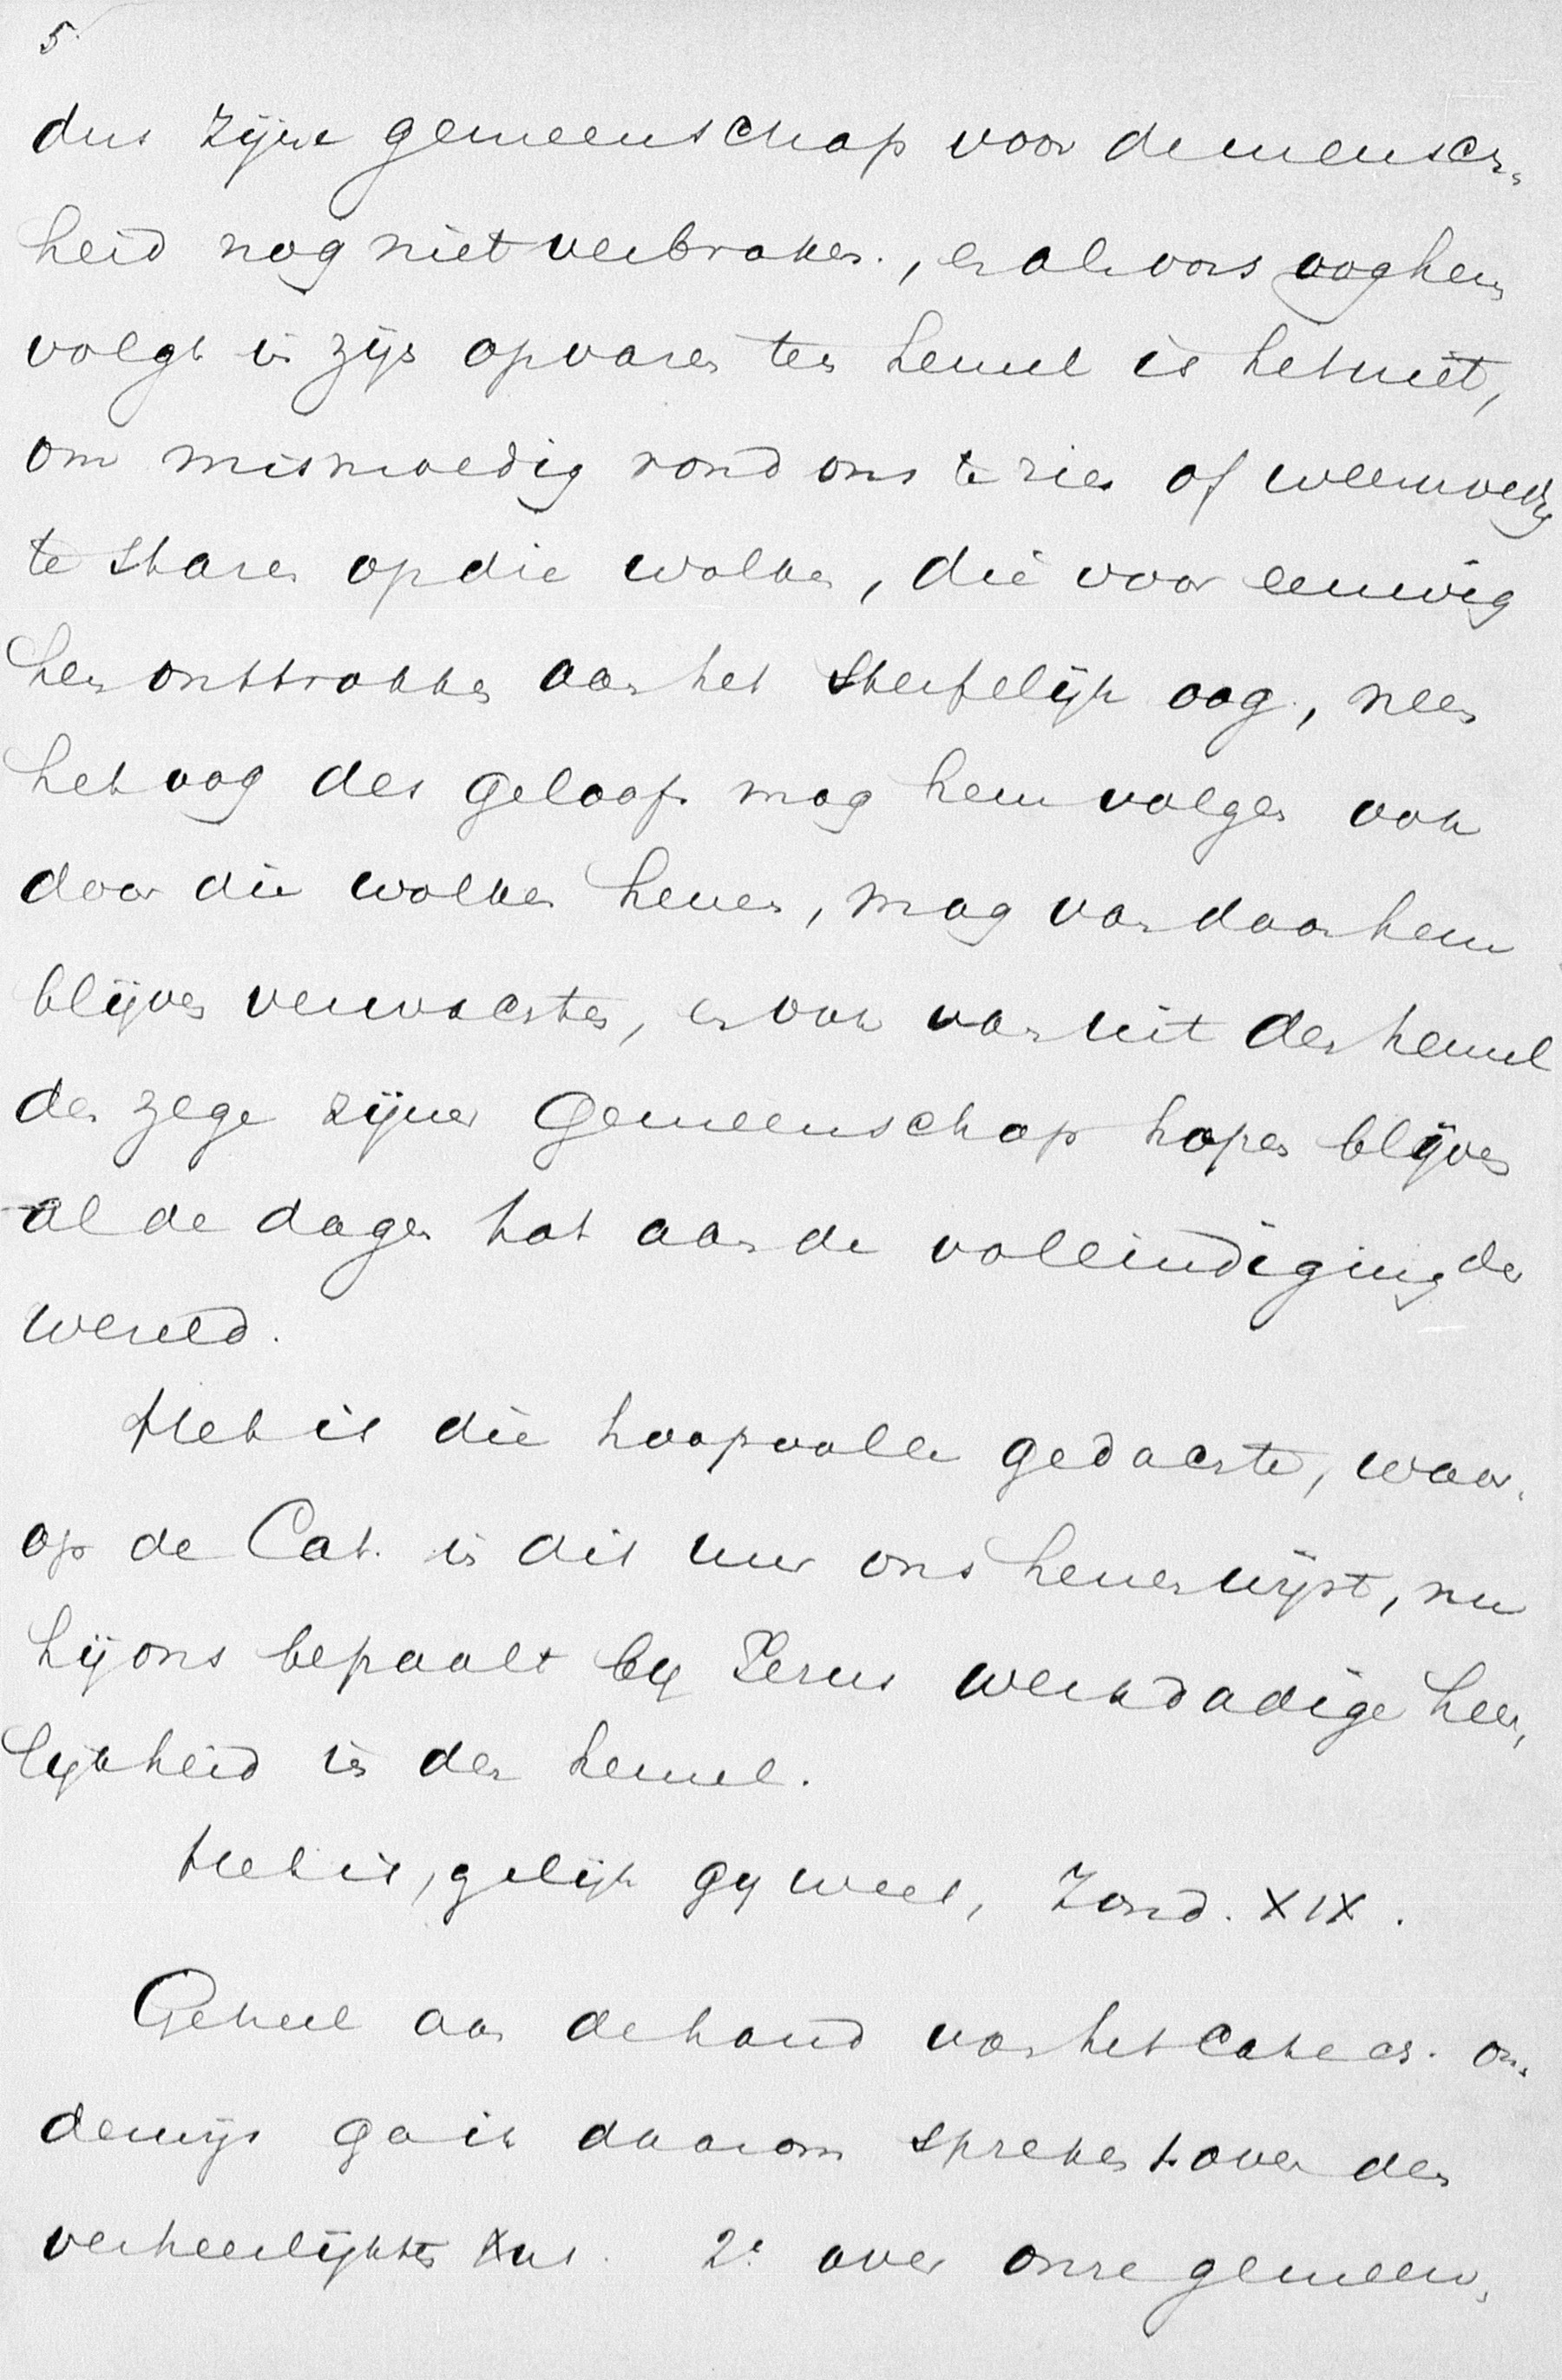 5.
dus zijne gemeenschap voor de mensch-
heid nog niet verbroken, en als ons oog hem
volgt in zijn opvaren ten hemel is het niet,
om mismoedig rond ons te zien of weemoedig
te staren op die wolken, die voor eeuwig
hem onttrokken aan het sterfelijk oog, neen
het oog des geloofs mag hem volgen ook
door die wolken henen, mag van daar hem
blijven verwachten, en ook van uit den hemel
den zegen zijner Gemeenschap hopen blijven
al de dagen tot aan de volleindiging der
wereld.
Het is die hoopvolle gedachte, waar-
op de Cat. in dit uur ons henen wijst, nu
hij ons bepaalt by Jezus werkdadige heer-
lijkheid in den hemel.
Het is, gelijk gy weet, Zond. XIX.
Geheel aan de hand van het Catech. on-
derwijs ga ik daarom spreken 1. over den
verheerlijkten Xus. 2e over onze gemeen-